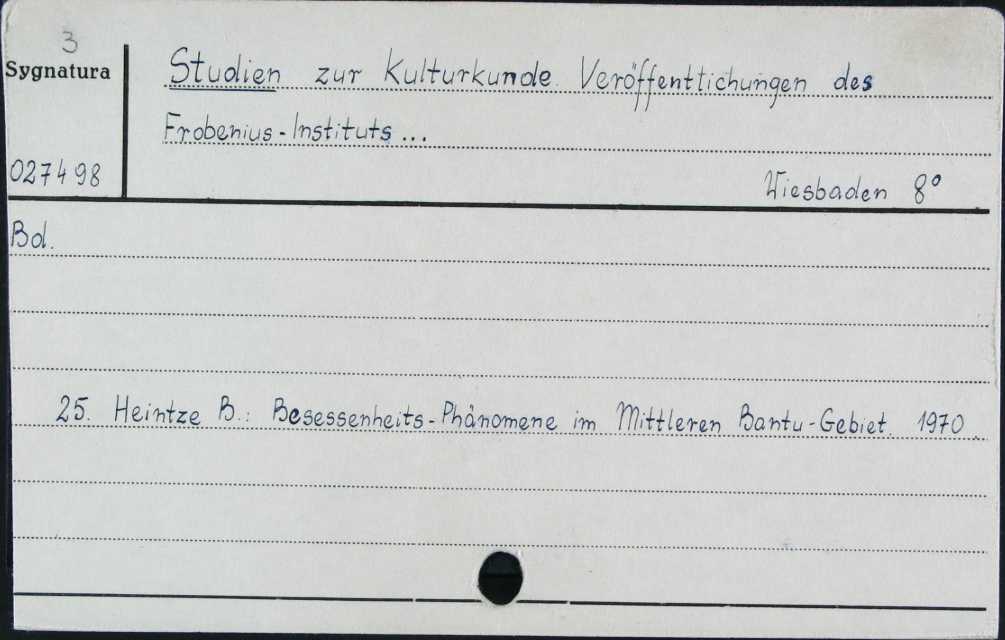 3
Sygnatura
Studien zur Kulturkunde. Veröffentlichungen des
Frobenius-Instituts...
027498
Wiesbaden 8°
Bd.
25. Heintze B.: Besessenheits-Phänomene im Mittleren Bantu-Gebiet. 1970.